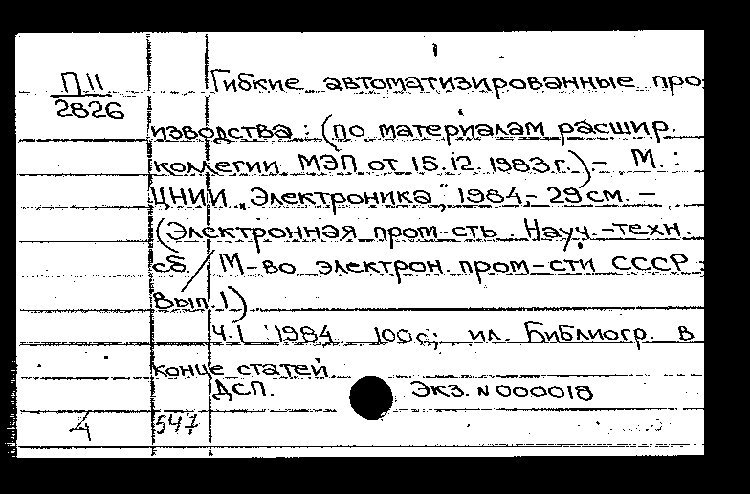 П II
2826
Гибкие автоматизированные про-
изводства : (по материалам расшир.
коллегии МЭП от 15.12.1983 г.). - М. :
ЦНИИ „Электроника", 1984.- 29 см. -
(Электронная пром-сть. Науч.-техн.
сб. / М-во электрон. пром-сти СССР ;
Вып. 1)
Ч.1 1984 100 с; ил. Библиогр. в
конце статей.
ДСП. Экз. N 000018
4 547